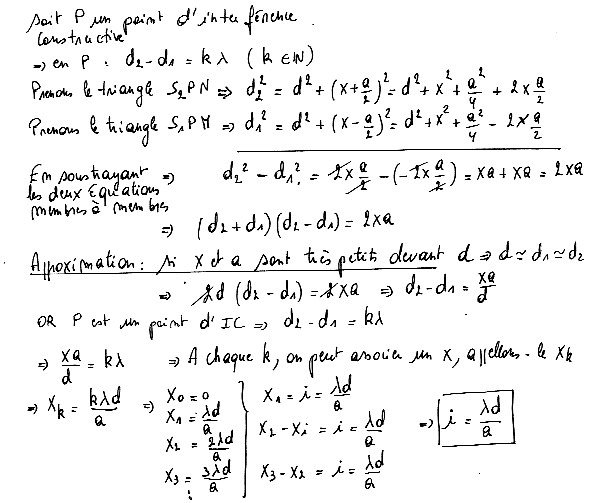 Soit P un point d'interférence
constructive
=> en P : d₂-d₁ = kλ (k ∈ ℕ)
Prenons le triangle S₂PN => d₂² = d² + (x+a/2)² = d² + x² + a²/4 + 2x a/2
Prenons le triangle S₁PM => d₁² = d² + (x-a/2)² = d² + x² + a²/4 - 2x a/2
En soustrayant => d₂² - d₁² = 2x a/2 - (-2x a/2) = xa + xa = 2xa
les deux équations
membres à membres
=> (d₂+d₁)(d₂-d₁) = 2xa
Approximation: si x et a sont très petits devant d => d ≃ d₁ ≃ d₂
=> 2d (d₂-d₁) = 2xa => d₂-d₁ = xa/d
OR P est un point d'IC => d₂-d₁ = kλ
=> xa/d = kλ => A chaque k, on peut associer un x, appellons-le xk
=> xk = kλd/a => x₀ = 0
x₁ = λd/a
x₂ = 2λd/a
x₃ = 3λd/a
x₁ = i = λd/a
x₂ - xi = i = λd/a
x₃ - x₂ = i = λd/a
=> i = λd/a